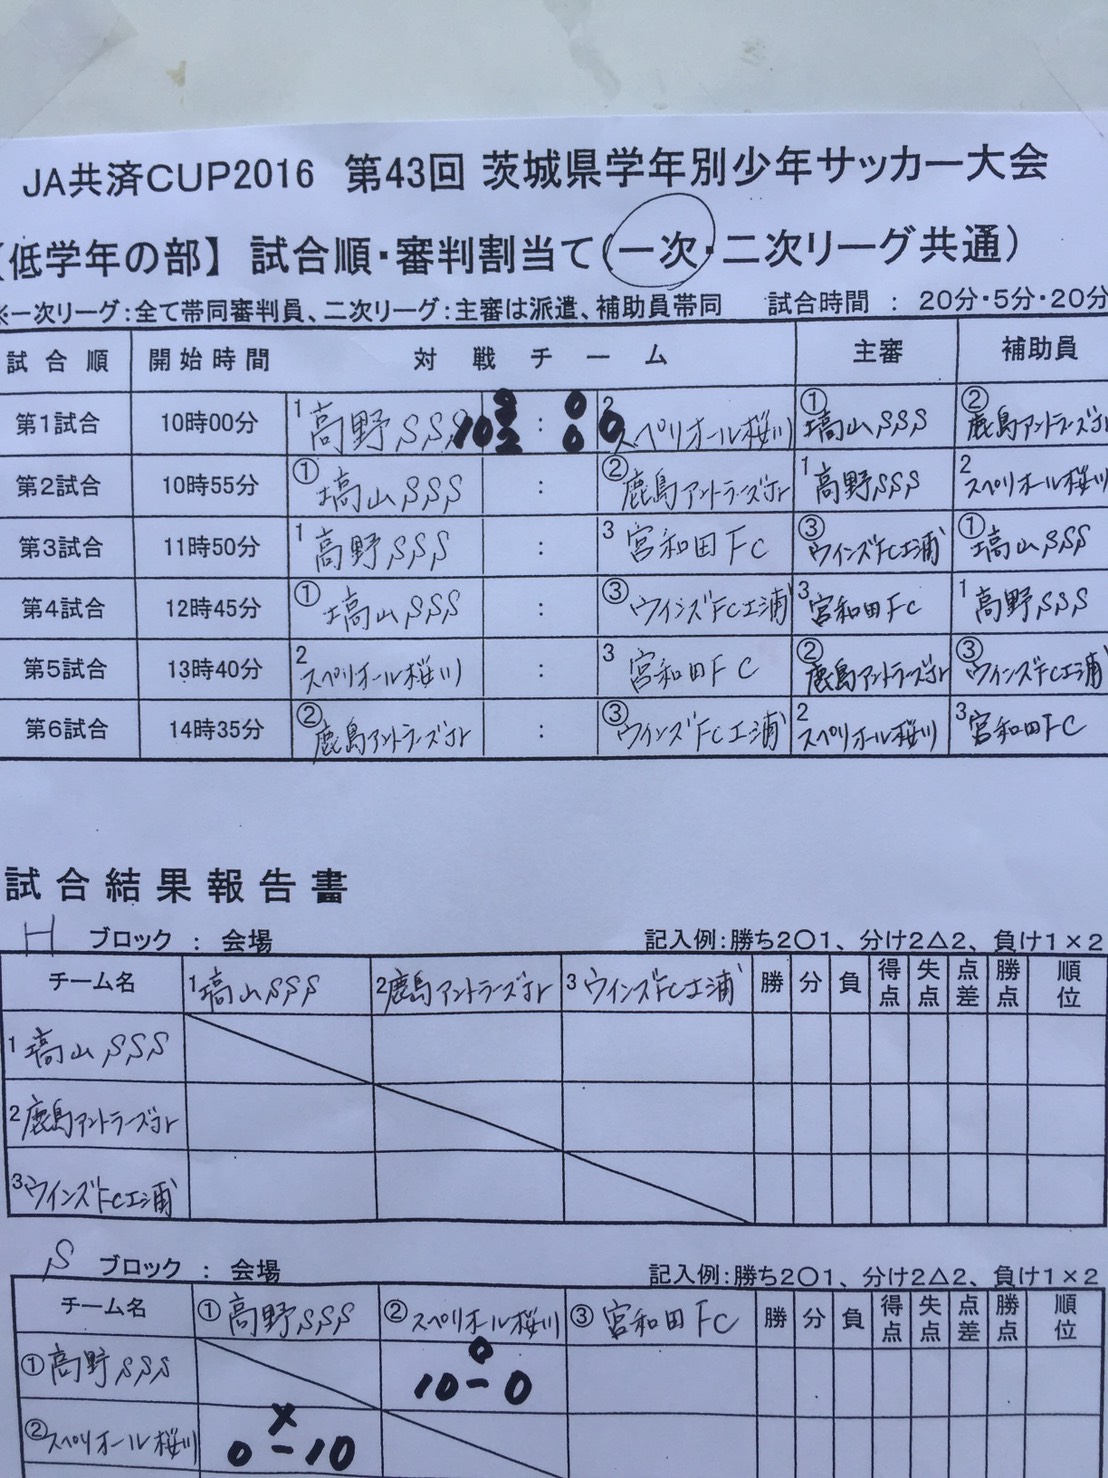 JA共済CUP2016 第43回 茨城県学年別少年サッカー大会
【低学年の部】 試合順・審判割当て(一次・二次リーグ共通)
※一次リーグ:全て帯同審判員、二次リーグ:主審は派遣、補助員帯同 試合時間 : 20分・5分・20分
試合順 開始時間 対戦チーム 主審 補助員
第1試合 10時00分 1 高野SSS 10 8 2 : 0 0 0 2 スペリオール桜川 ① 塙山SSS ② 鹿島アントラーズJr
第2試合 10時55分 ① 塙山SSS : ② 鹿島アントラーズJr 1 高野SSS 2 スペリオール桜川
第3試合 11時50分 1 高野SSS : 3 宮和田FC ③ ウインズFC土浦 ① 塙山SSS
第4試合 12時45分 ① 塙山SSS : ③ ウインズFC土浦 3 宮和田FC 1 高野SSS
第5試合 13時40分 2 スペリオール桜川 : 3 宮和田FC ② 鹿島アントラーズJr ③ ウインズFC土浦
第6試合 14時35分 ② 鹿島アントラーズJr : ③ ウインズFC土浦 2 スペリオール桜川 3 宮和田FC
試合結果報告書
H ブロック : 会場 記入例:勝ち2〇1、分け2△2、負け1×2
チーム名 1 塙山SSS 2 鹿島アントラーズJr 3 ウインズFC土浦 勝 分 負 得点 失点 点差 勝点 順位
1 塙山SSS
2 鹿島アントラーズJr
3 ウインズFC土浦
S ブロック : 会場 記入例:勝ち2〇1、分け2△2、負け1×2
チーム名 ① 高野SSS ② スペリオール桜川 ③ 宮和田FC 勝 分 負 得点 失点 点差 勝点 順位
① 高野SSS 〇 10-0
② スペリオール桜川 × 0-10